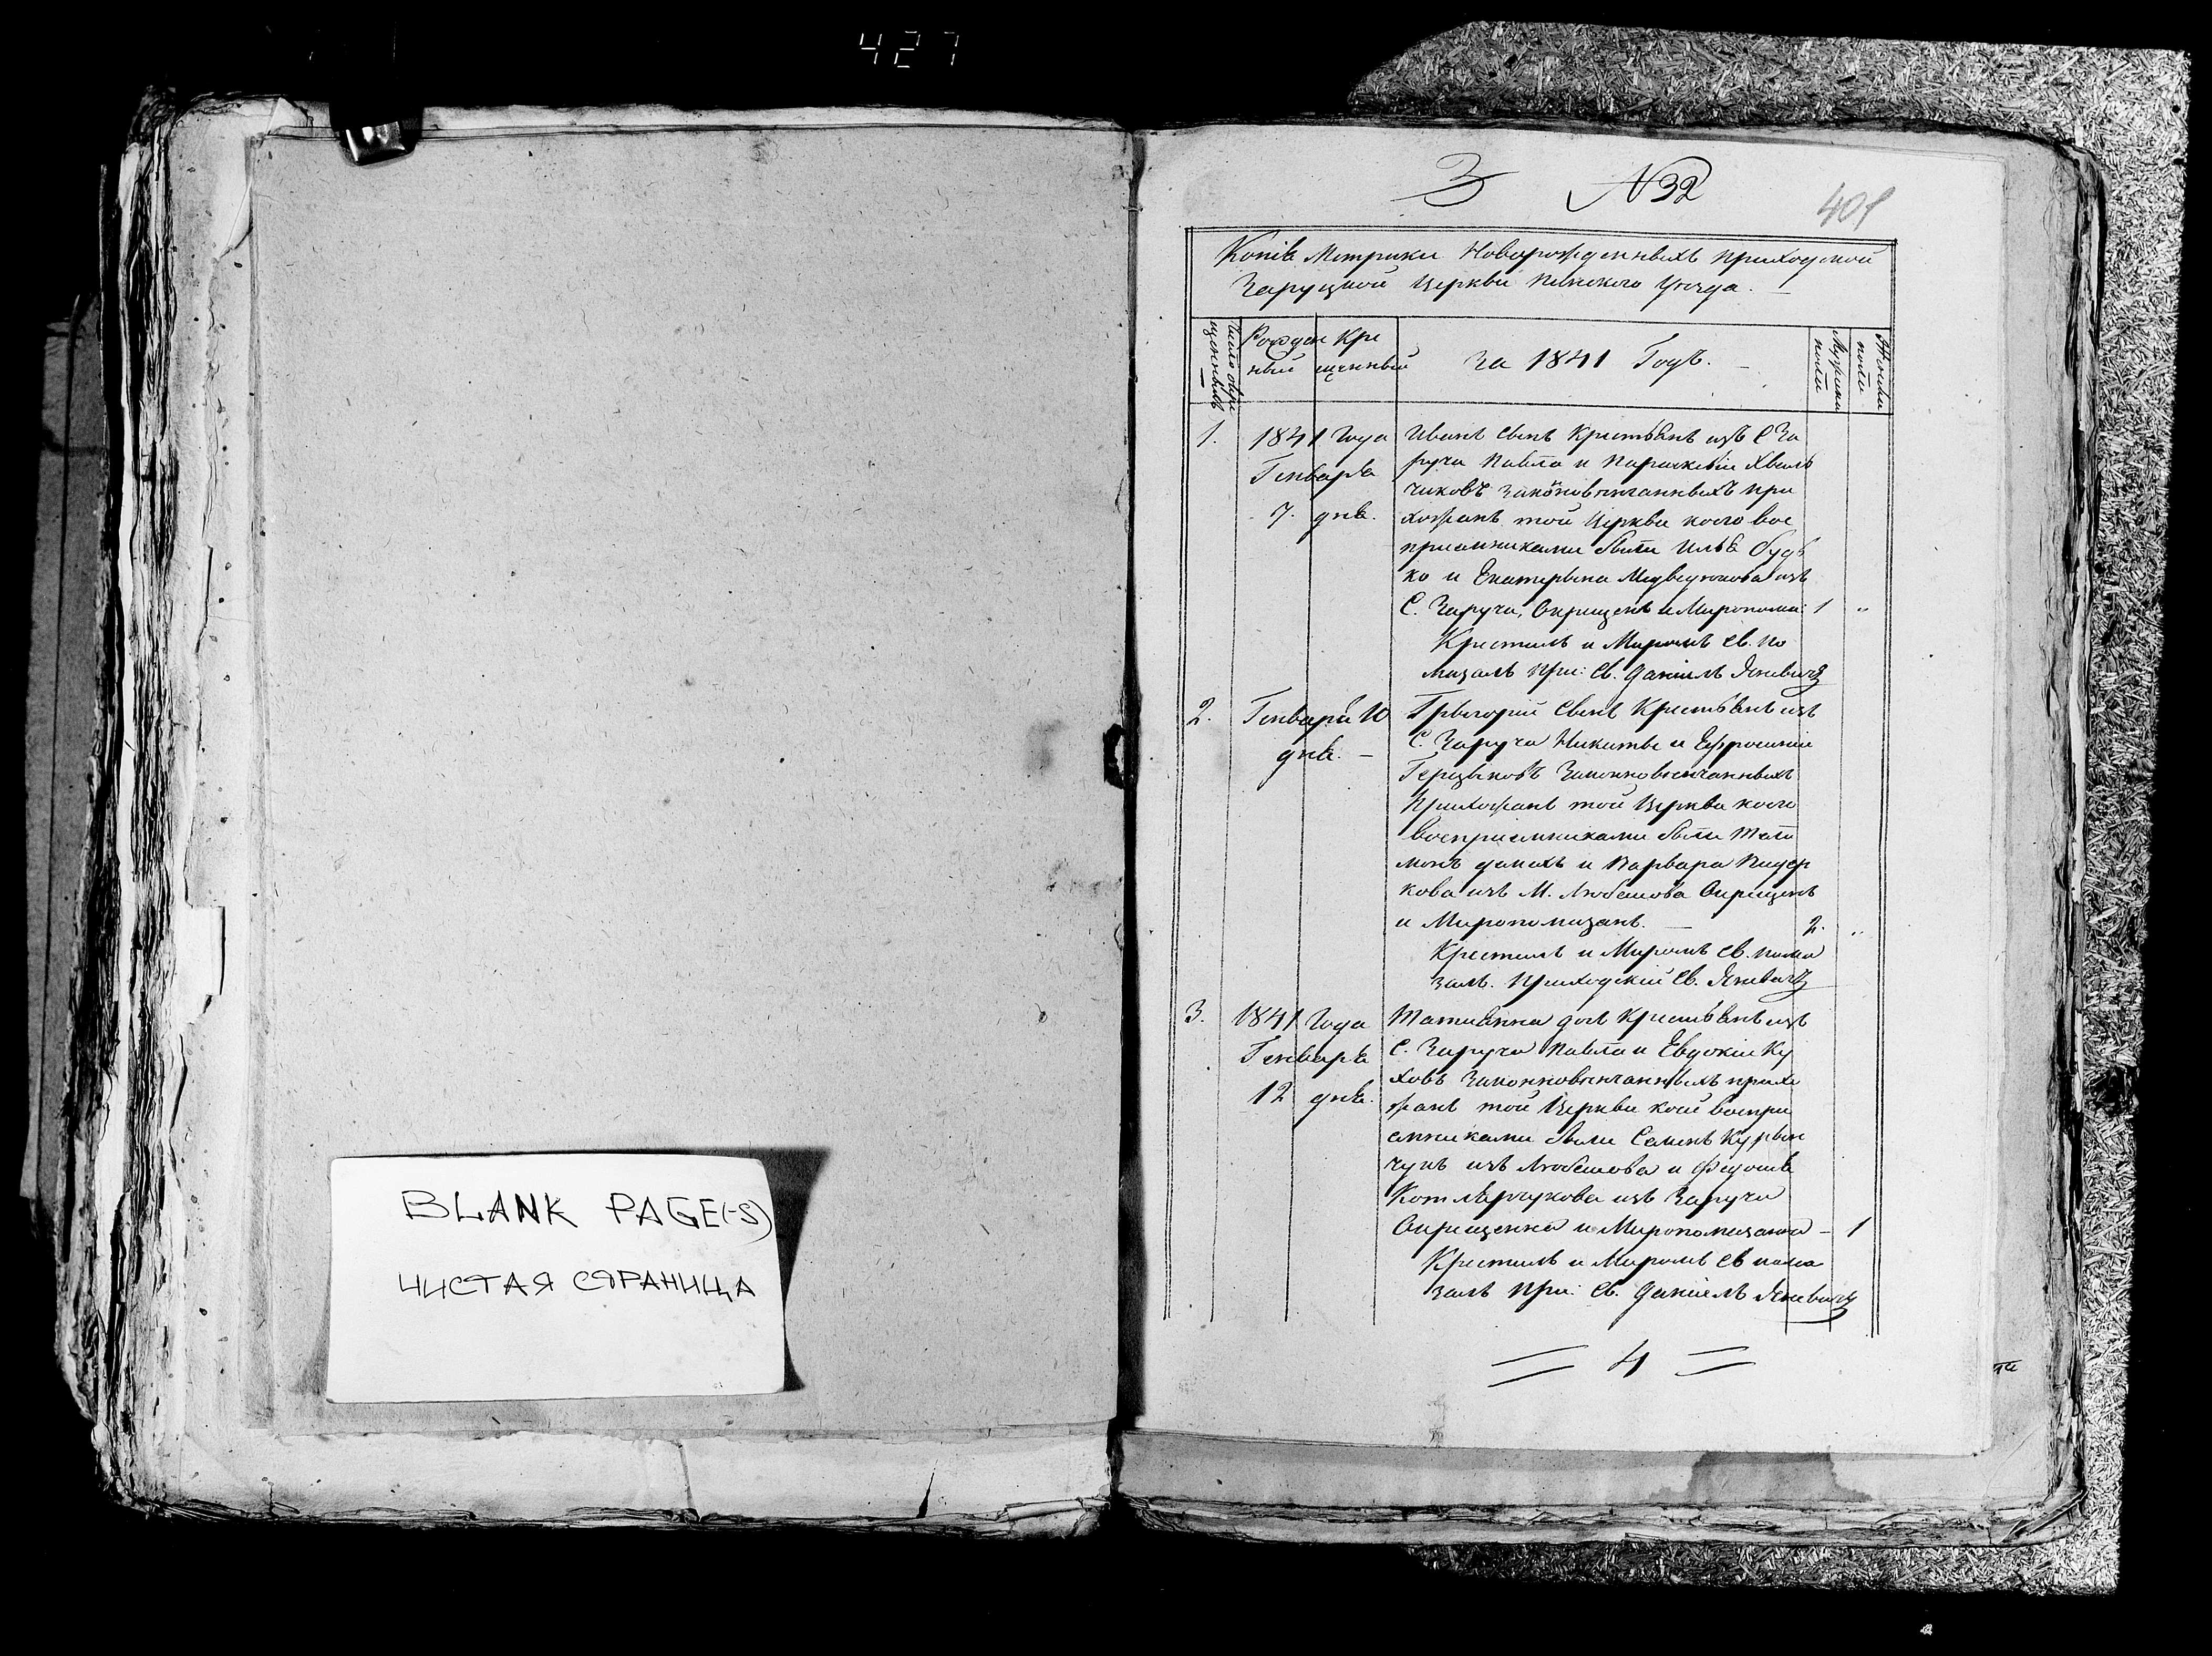 427
BLANK PAGE(-S)
ЧИСТАЯ СТРАНИЦА
3 N 32
401
Копія Метрики Новорожденныхъ приходской
Заруцкой Церкви Пинского Уезда.
Число окрещенныхъ
Рожденный
Крещенный
За 1841 Годъ.
Мужски полъ
Женски полъ
1.
1841 Года
Генваря
7. дня.
Иванъ сынъ Крестьянъ изъ С За
руча Павла и Параскевіи Хваль
чиковъ законновенчанныхъ при
хожанъ той Церкви коего вос
приемниками были Илья Будь
ко и Екатерына Медведюкова изъ
С. Заруча, Окрещенъ и Миропома: 1 "
Крестилъ и Миромъ св. по
мазалъ при: св. Даніилъ Яневичъ
2.
Генваря 10
дня. –
Грыгорій сынъ Крестьянъ изъ
С. Заруча Никиты и Ефросиніи
Герцыковъ Законновенчанныхъ
Прихожанъ той Церкви коего
восприемниками были
и Варвара
кова изъ М. Любешова Окрещенъ
и Миропомазанъ. – 2. "
Крестилъ и Миромъ св. пома
залъ. Приходскій св. Яневичъ
3.
1841 Года
Генваря
12 дня.
Татиянна дочь Крестьянъ изъ
С. Заруча Павла и Евдокіи Ку
ховъ Законновенчанныхъ прихо
жанъ той Церкви коей воспри
емниками были Семенъ Курын
чукъ изъ Любешова и Федосія
изъ Заруча
Окрещенна и Миропомазанна – 1
Крестилъ и Миромъ св пома
залъ при: св. Даніилъ Яневичъ
= 4 =